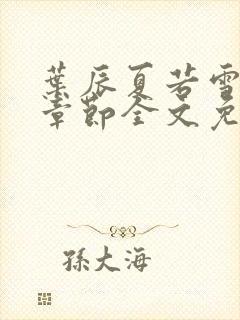 葉辰夏若雪
章節全文免
孫大海